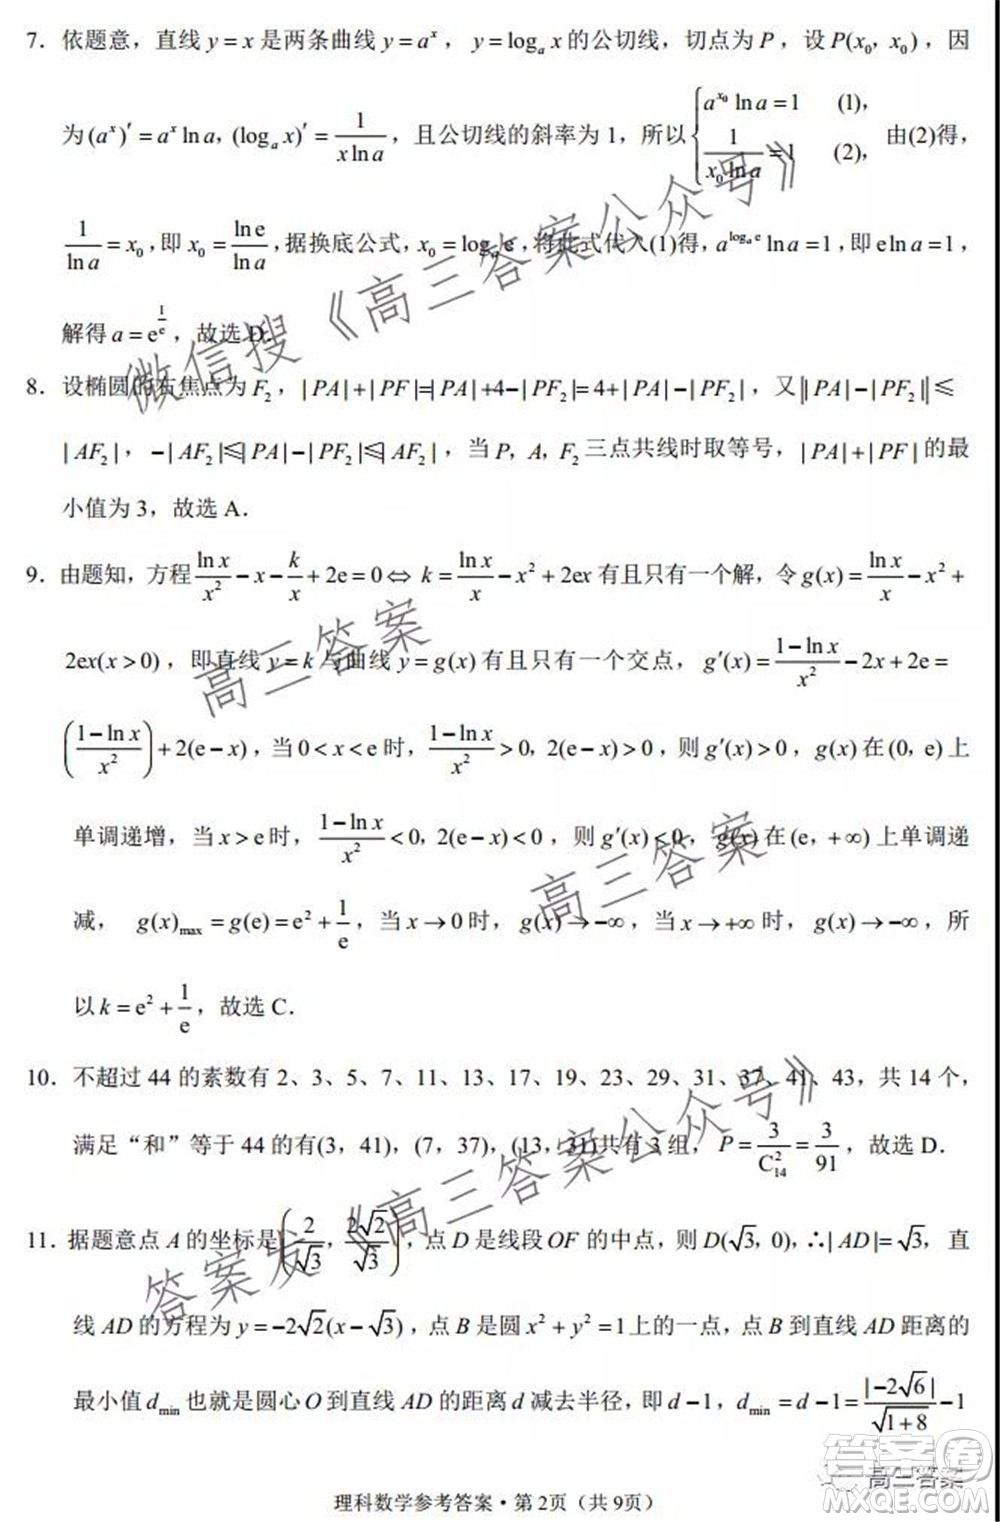 7. 依题意，直线 y=x 是两条曲线 y=a^x，y=log_a x 的公切线，切点为 P，设 P(x₀, x₀)，因
为 (a^x)′=a^x ln a, (log_a x)′=1/(x ln a)，且公切线的斜率为 1，所以 { a^{x₀} ln a=1 (1), 1/(x₀ ln a)=1 (2), 由(2)得,
1/ln a=x₀, 即 x₀=ln e/ln a, 据换底公式, x₀=log_a e, 将此式代入(1)得, a^{log_a e} ln a=1, 即 e ln a=1,
解得 a=e^{1/e}，故选 D.
8. 设椭圆的右焦点为 F₂，|PA|+|PF|=|PA|+4−|PF₂|=4+|PA|−|PF₂|，又||PA|−|PF₂||≤
|AF₂|，−|AF₂|≤|PA|−|PF₂|≤|AF₂|，当 P, A, F₂ 三点共线时取等号，|PA|+|PF| 的最
小值为 3，故选 A.
9. 由题知，方程 ln x/x² − x − k/x + 2e=0⇔ k=ln x/x − x²+2ex 有且只有一个解，令 g(x)=ln x/x − x²+
2ex(x>0)，即直线 y=k 与曲线 y=g(x) 有且只有一个交点，g′(x)=(1−ln x)/x² −2x+2e=
((1−ln x)/x²)+2(e−x)，当 0<x<e 时, (1−ln x)/x²>0, 2(e−x)>0，则 g′(x)>0，g(x) 在 (0, e) 上
单调递增，当 x>e 时，(1−ln x)/x²<0, 2(e−x)<0，则 g′(x)<0，g(x) 在 (e, +∞) 上单调递
减， g(x)max=g(e)=e²+1/e，当 x→0 时，g(x)→−∞，当 x→+∞ 时，g(x)→−∞，所
以 k=e²+1/e，故选 C.
10. 不超过 44 的素数有 2、3、5、7、11、13、17、19、23、29、31、37、41、43，共 14 个，
满足“和”等于 44 的有(3, 41), (7, 37), (13, 31)共有 3 组，P=3/C₁₄²=3/91，故选 D.
11. 据题意点 A 的坐标是(2/√3, 2√2/√3)，点 D 是线段 OF 的中点，则 D(√3, 0), ∴|AD|=√3，直
线 AD 的方程为 y=−2√2(x−√3)，点 B 是圆 x²+y²=1 上的一点，点 B 到直线 AD 距离的
最小值 d_min 也就是圆心 O 到直线 AD 的距离 d 减去半径，即 d−1，d_min=d−1=|−2√6|/√(1+8) −1
理科数学参考答案·第 2页（共 9页）
微信搜《高三答案公众号》
高三答案
高三答案
答案发《高三答案公众号》
高三答案
答案圈